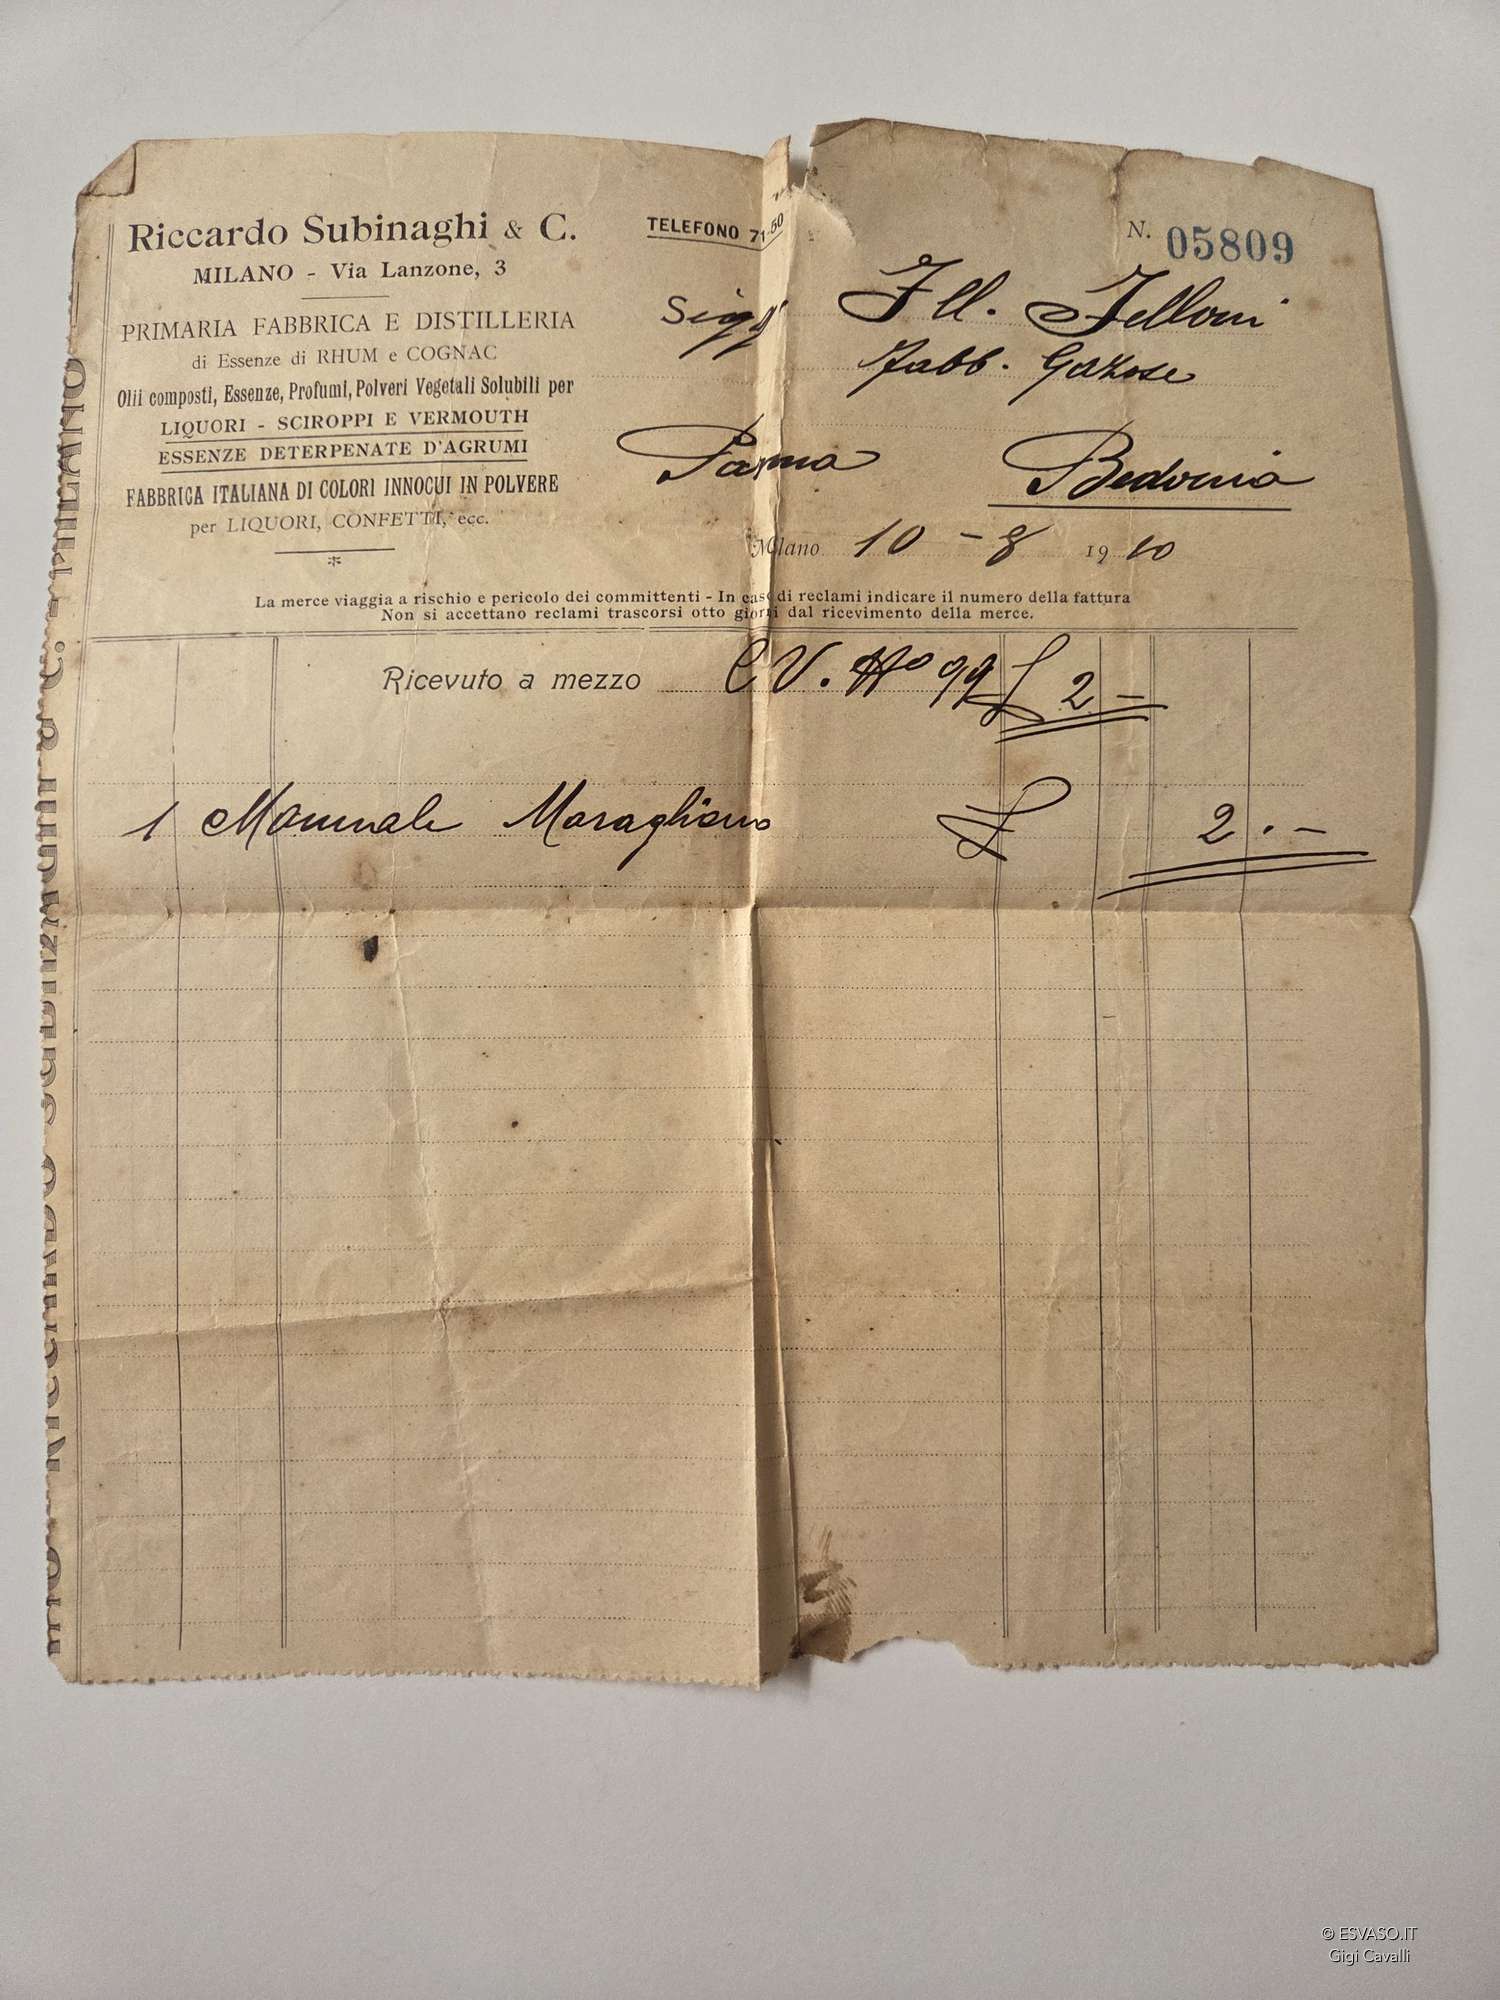 Riccardo Subinaghi & C.
MILANO - Via Lanzone, 3
PRIMARIA FABBRICA E DISTILLERIA
di Essenze di RHUM e COGNAC
Olii composti, Essenze, Profumi, Polveri Vegetali Solubili per
LIQUORI - SCIROPPI E VERMOUTH
ESSENZE DETERPENATE D'AGRUMI
FABBRICA ITALIANA DI COLORI INNOCUI IN POLVERE
per LIQUORI, CONFETTI, ecc.
TELEFONO 71-50
N. 05809
Sigg Fll. Felloni
Fabb. Gazose
Parma Bedonia
Milano 10 - 8 1910
La merce viaggia a rischio e pericolo dei committenti - In caso di reclami indicare il numero della fattura
Non si accettano reclami trascorsi otto giorni dal ricevimento della merce.
Ricevuto a mezzo C V. No 99 £ 2 -
1 Manuale Moragliano £ 2 . -
© ESVASO.IT
Gigi Cavalli